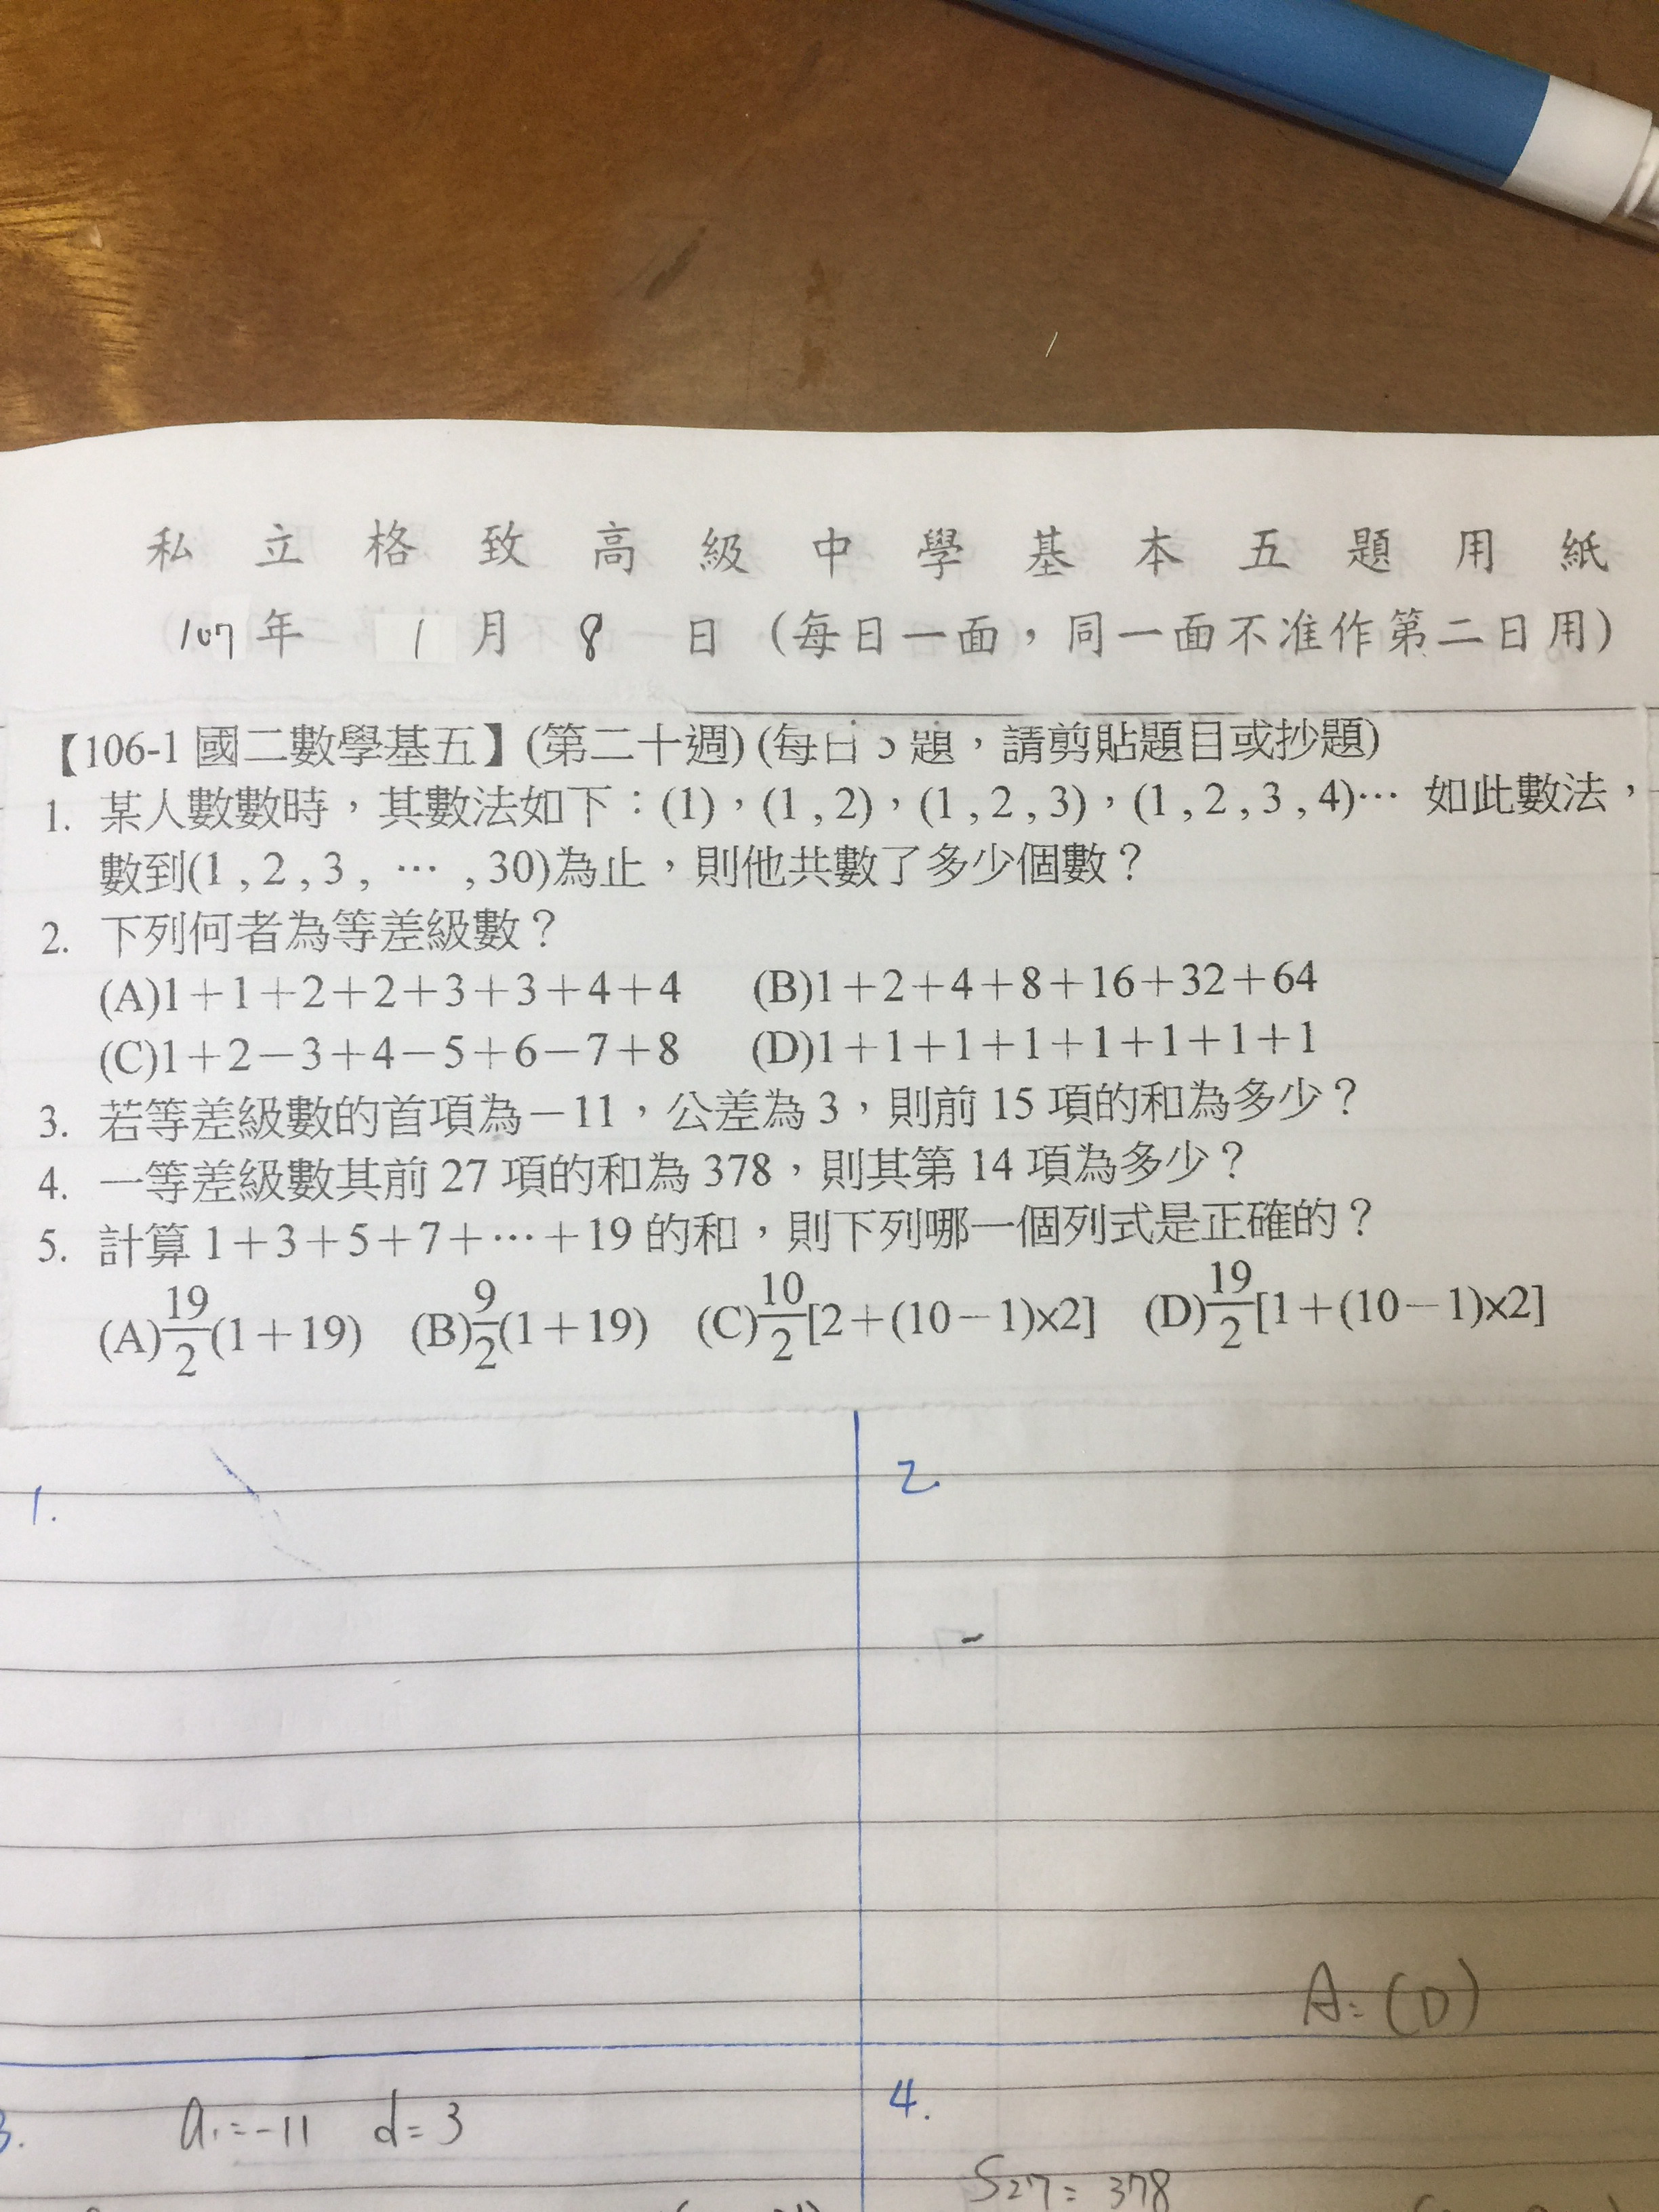 私立格致高級中學基本五題用紙
107年 1月 8 日(每日一面，同一面不准作第二日用)
【106-1 國二數學基五】(第二十週) (每日 5 題，請剪貼題目或抄題)
1. 某人數數時，其數法如下：(1)，(1 , 2)，(1 , 2 , 3)，(1 , 2 , 3 , 4)… 如此數法，
數到(1 , 2 , 3 , … , 30)為止，則他共數了多少個數？
2. 下列何者為等差級數？
(A)1＋1＋2＋2＋3＋3＋4＋4 (B)1＋2＋4＋8＋16＋32＋64
(C)1＋2－3＋4－5＋6－7＋8 (D)1＋1＋1＋1＋1＋1＋1＋1
3. 若等差級數的首項為－11，公差為 3，則前 15 項的和為多少？
4. 一等差級數其前 27 項的和為 378，則其第 14 項為多少？
5. 計算 1＋3＋5＋7＋…＋19 的和，則下列哪一個列式是正確的？
(A)19/2(1＋19) (B)9/2(1＋19) (C)10/2[2＋(10－1)×2] (D)19/2[1＋(10－1)×2]
1.
2.
A=(D)
3. a₁=-11 d=3
4.
S27=378